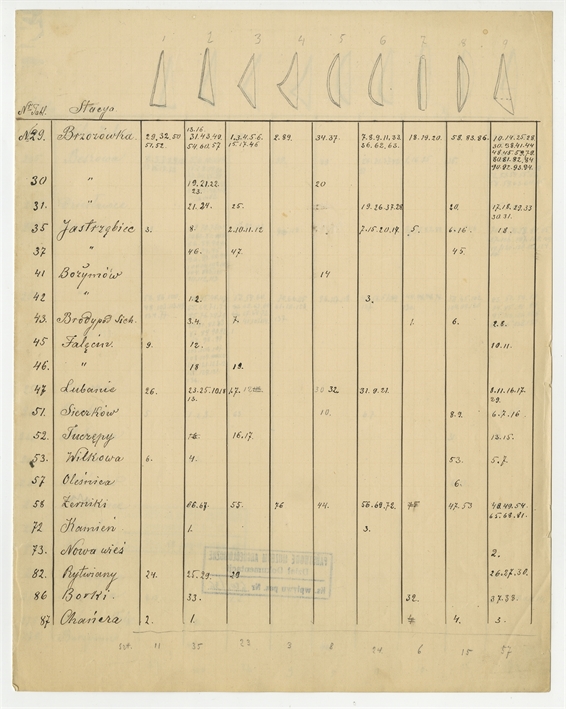 1 2 3 4 5 6 7 8 9
Stacya
29. Brzozówka 29.32.50 13.16. 1.3.4.5.6. 2.89. 34.37. 7.8.9.11.33. 18.19.20. 58.83.86. 10.14.25.28.
51.52. 31.43.49. 15.17.46 36.62.63. 30.38.41.44
54.60.57
90.92.93.94.
30 " 19.21.22. 20
23.
31. " 21.24. 25. 19.26.37.28. 20. 17.18.29.33
30.31.
35 Jastrzębiec 3. 8. 2.10.11.12 7.15.20.19. 5. 6.16. 18.
37 " 46. 47. 45.
41 Bożymów 14
42 " 1.2. 3.
43. Brody pod Sich. 3.4. 7. 1. 6. 2.8.
45 Falęcin 9. 12. 10.11.
46. " 18 19.
47 Lubanie 26. 23.25.10.18 27. 32. 31.9.21. 8.11.16.17.
13. 29.
51. Sieczków 10. 8.9. 6.7.16
52. Tuczępy 16.17. 13.15.
53. Wilkowa 6. 4. 53. 5.7.
57 Oleśnica 6.
58 Żerniki 66.67. 55. 76 44. 56.69.72. 47.53 48.49.54
72 Kamień 1. 3.
73. Nowa wieś 2.
82. Rytwiany 24. 25.29. 28 26.27.30.
86 Borki 33. 32. 37.35.
87 Chańcza 2. 1. 4. 3.
11 35 22 3 8 24 6 15 57